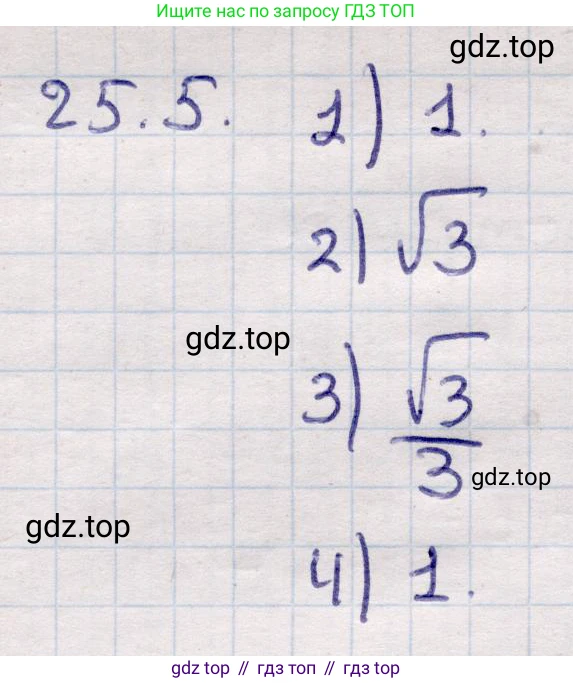 Ищите нас по запросу ГДЗ ТОП
gdz.top
25.5. 1) 1.
2) √3
gdz.top
3) √3/3
gdz.top
gdz.top
4) 1.
gdz.top // гдз топ // gdz.top